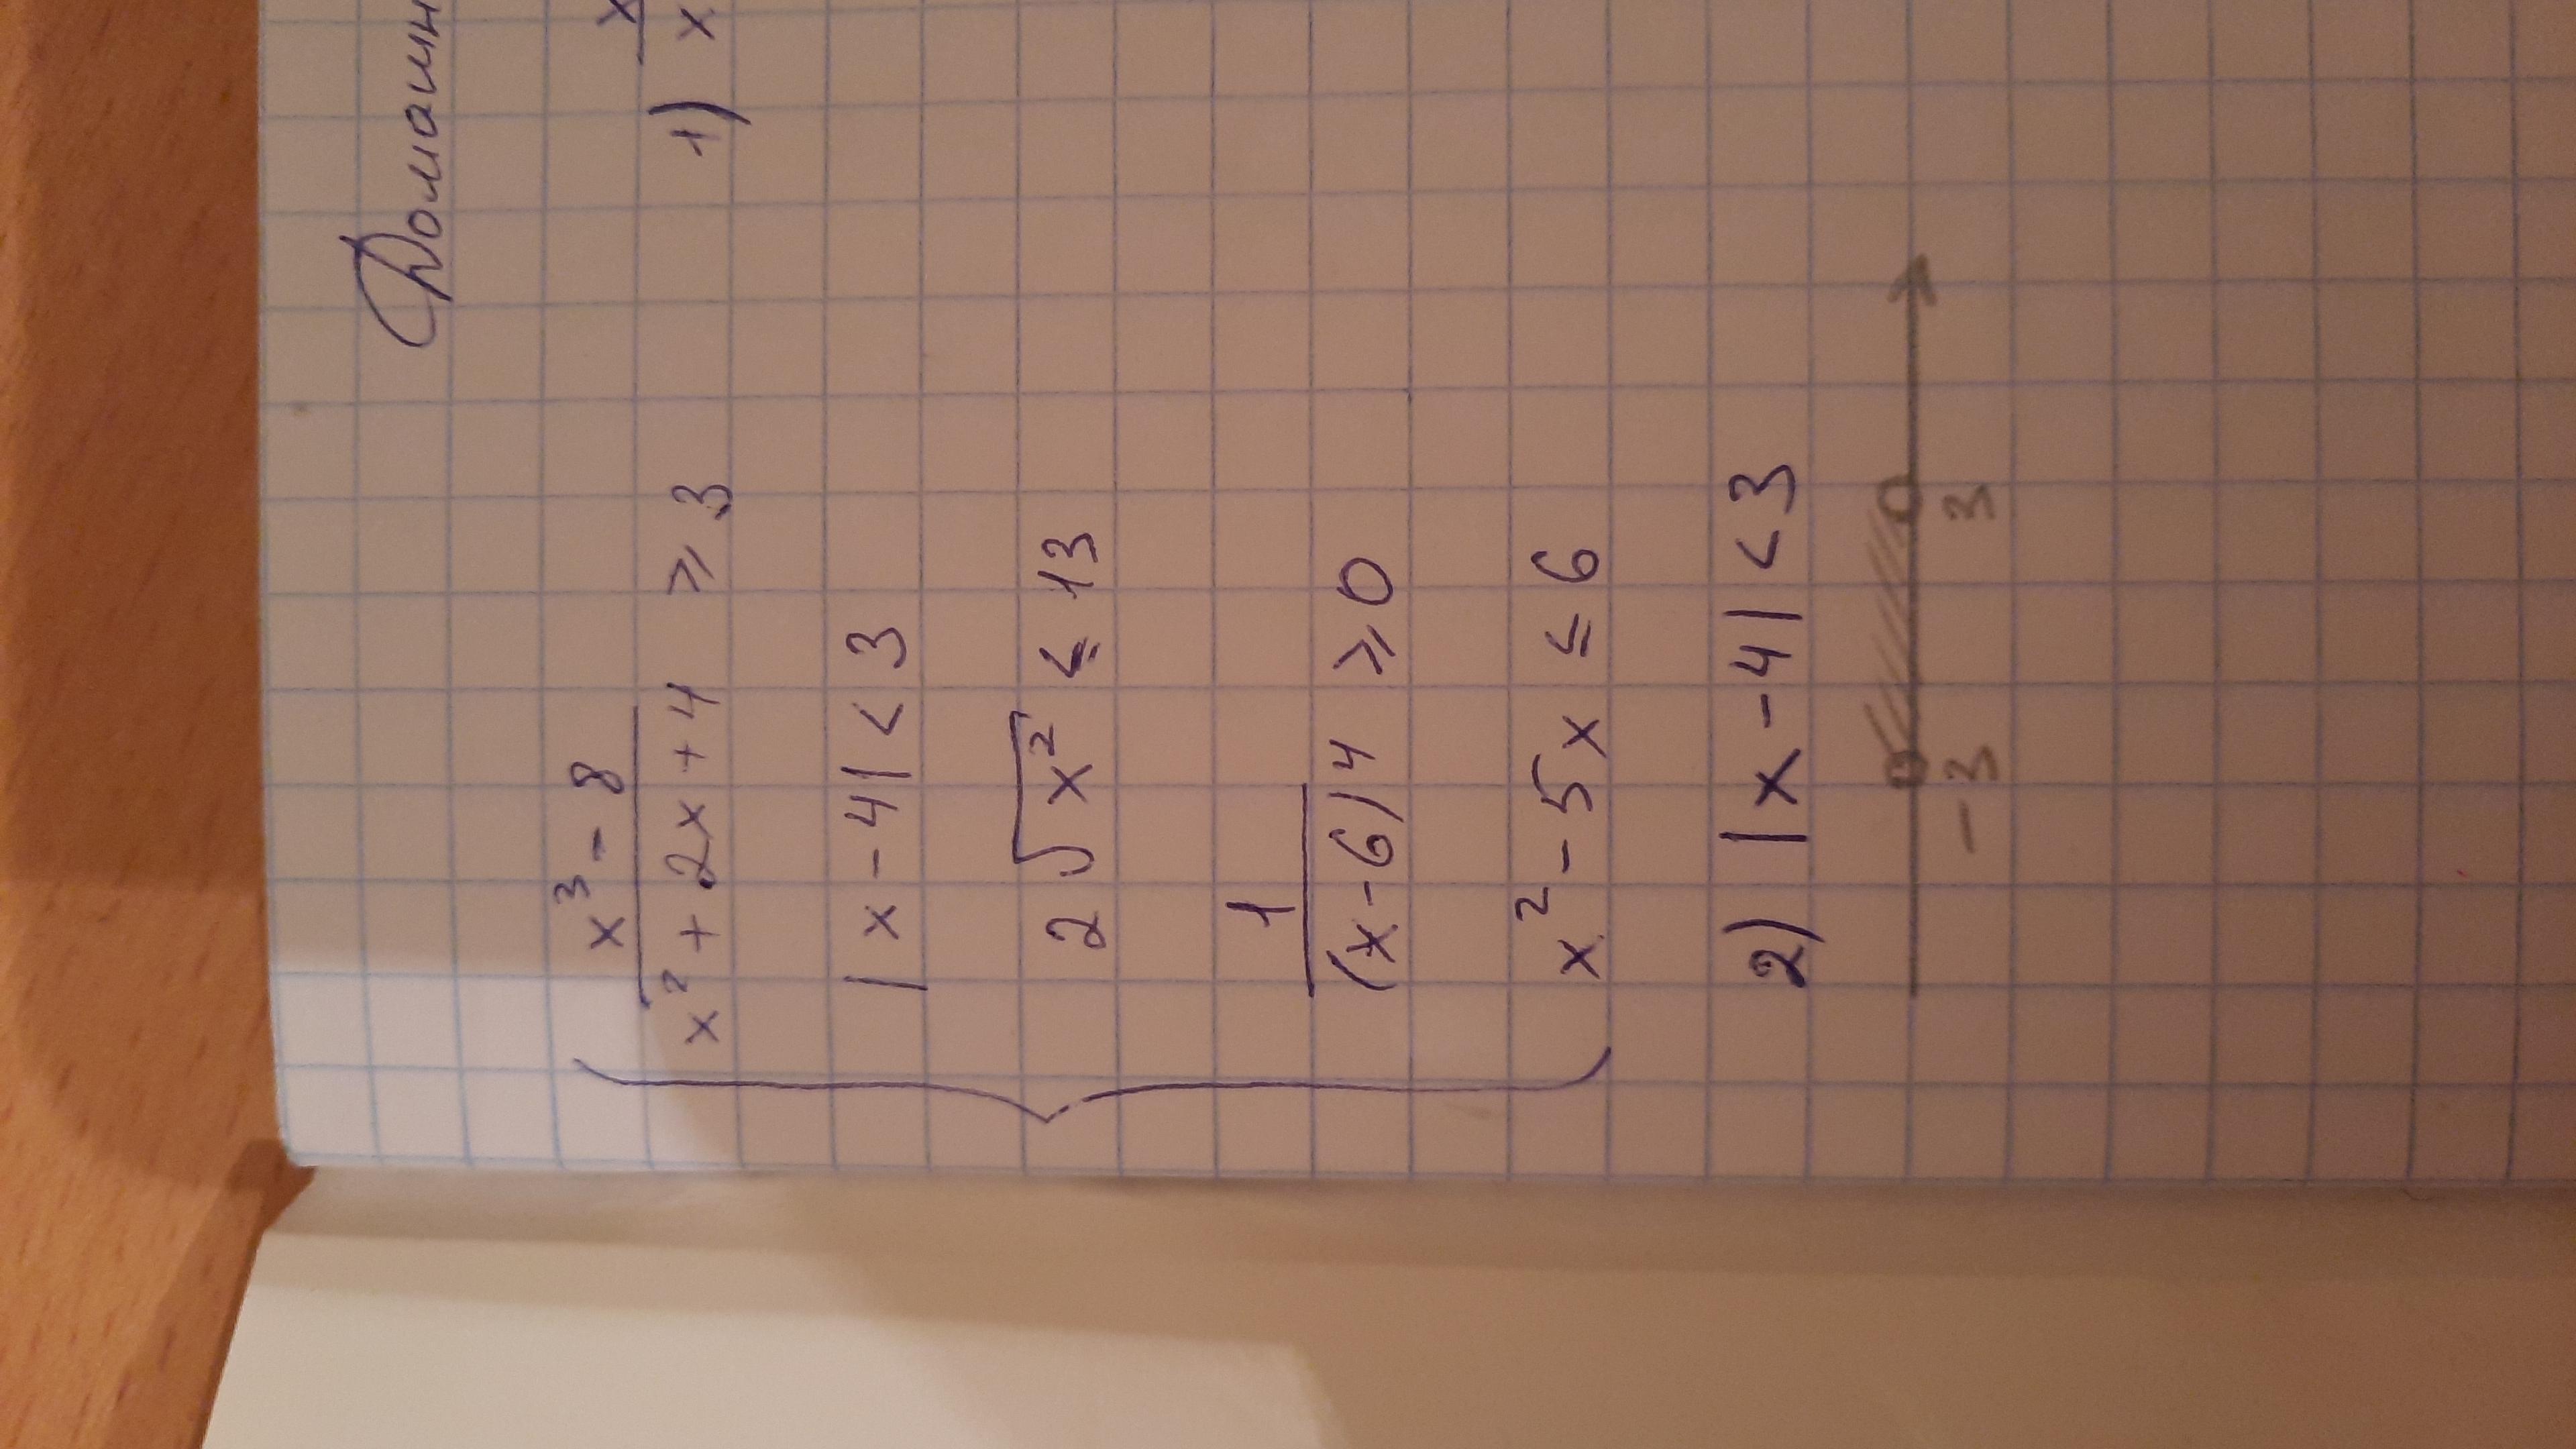 Домашн
x³ - 8
x² + 2x + 4 ⩾ 3
1) x
x
|x - 4| < 3
2√x² ≤ 13
1
(x - 6)⁴ ⩾ 0
x² - 5x ≤ 6
2) |x - 4| < 3
-3 3